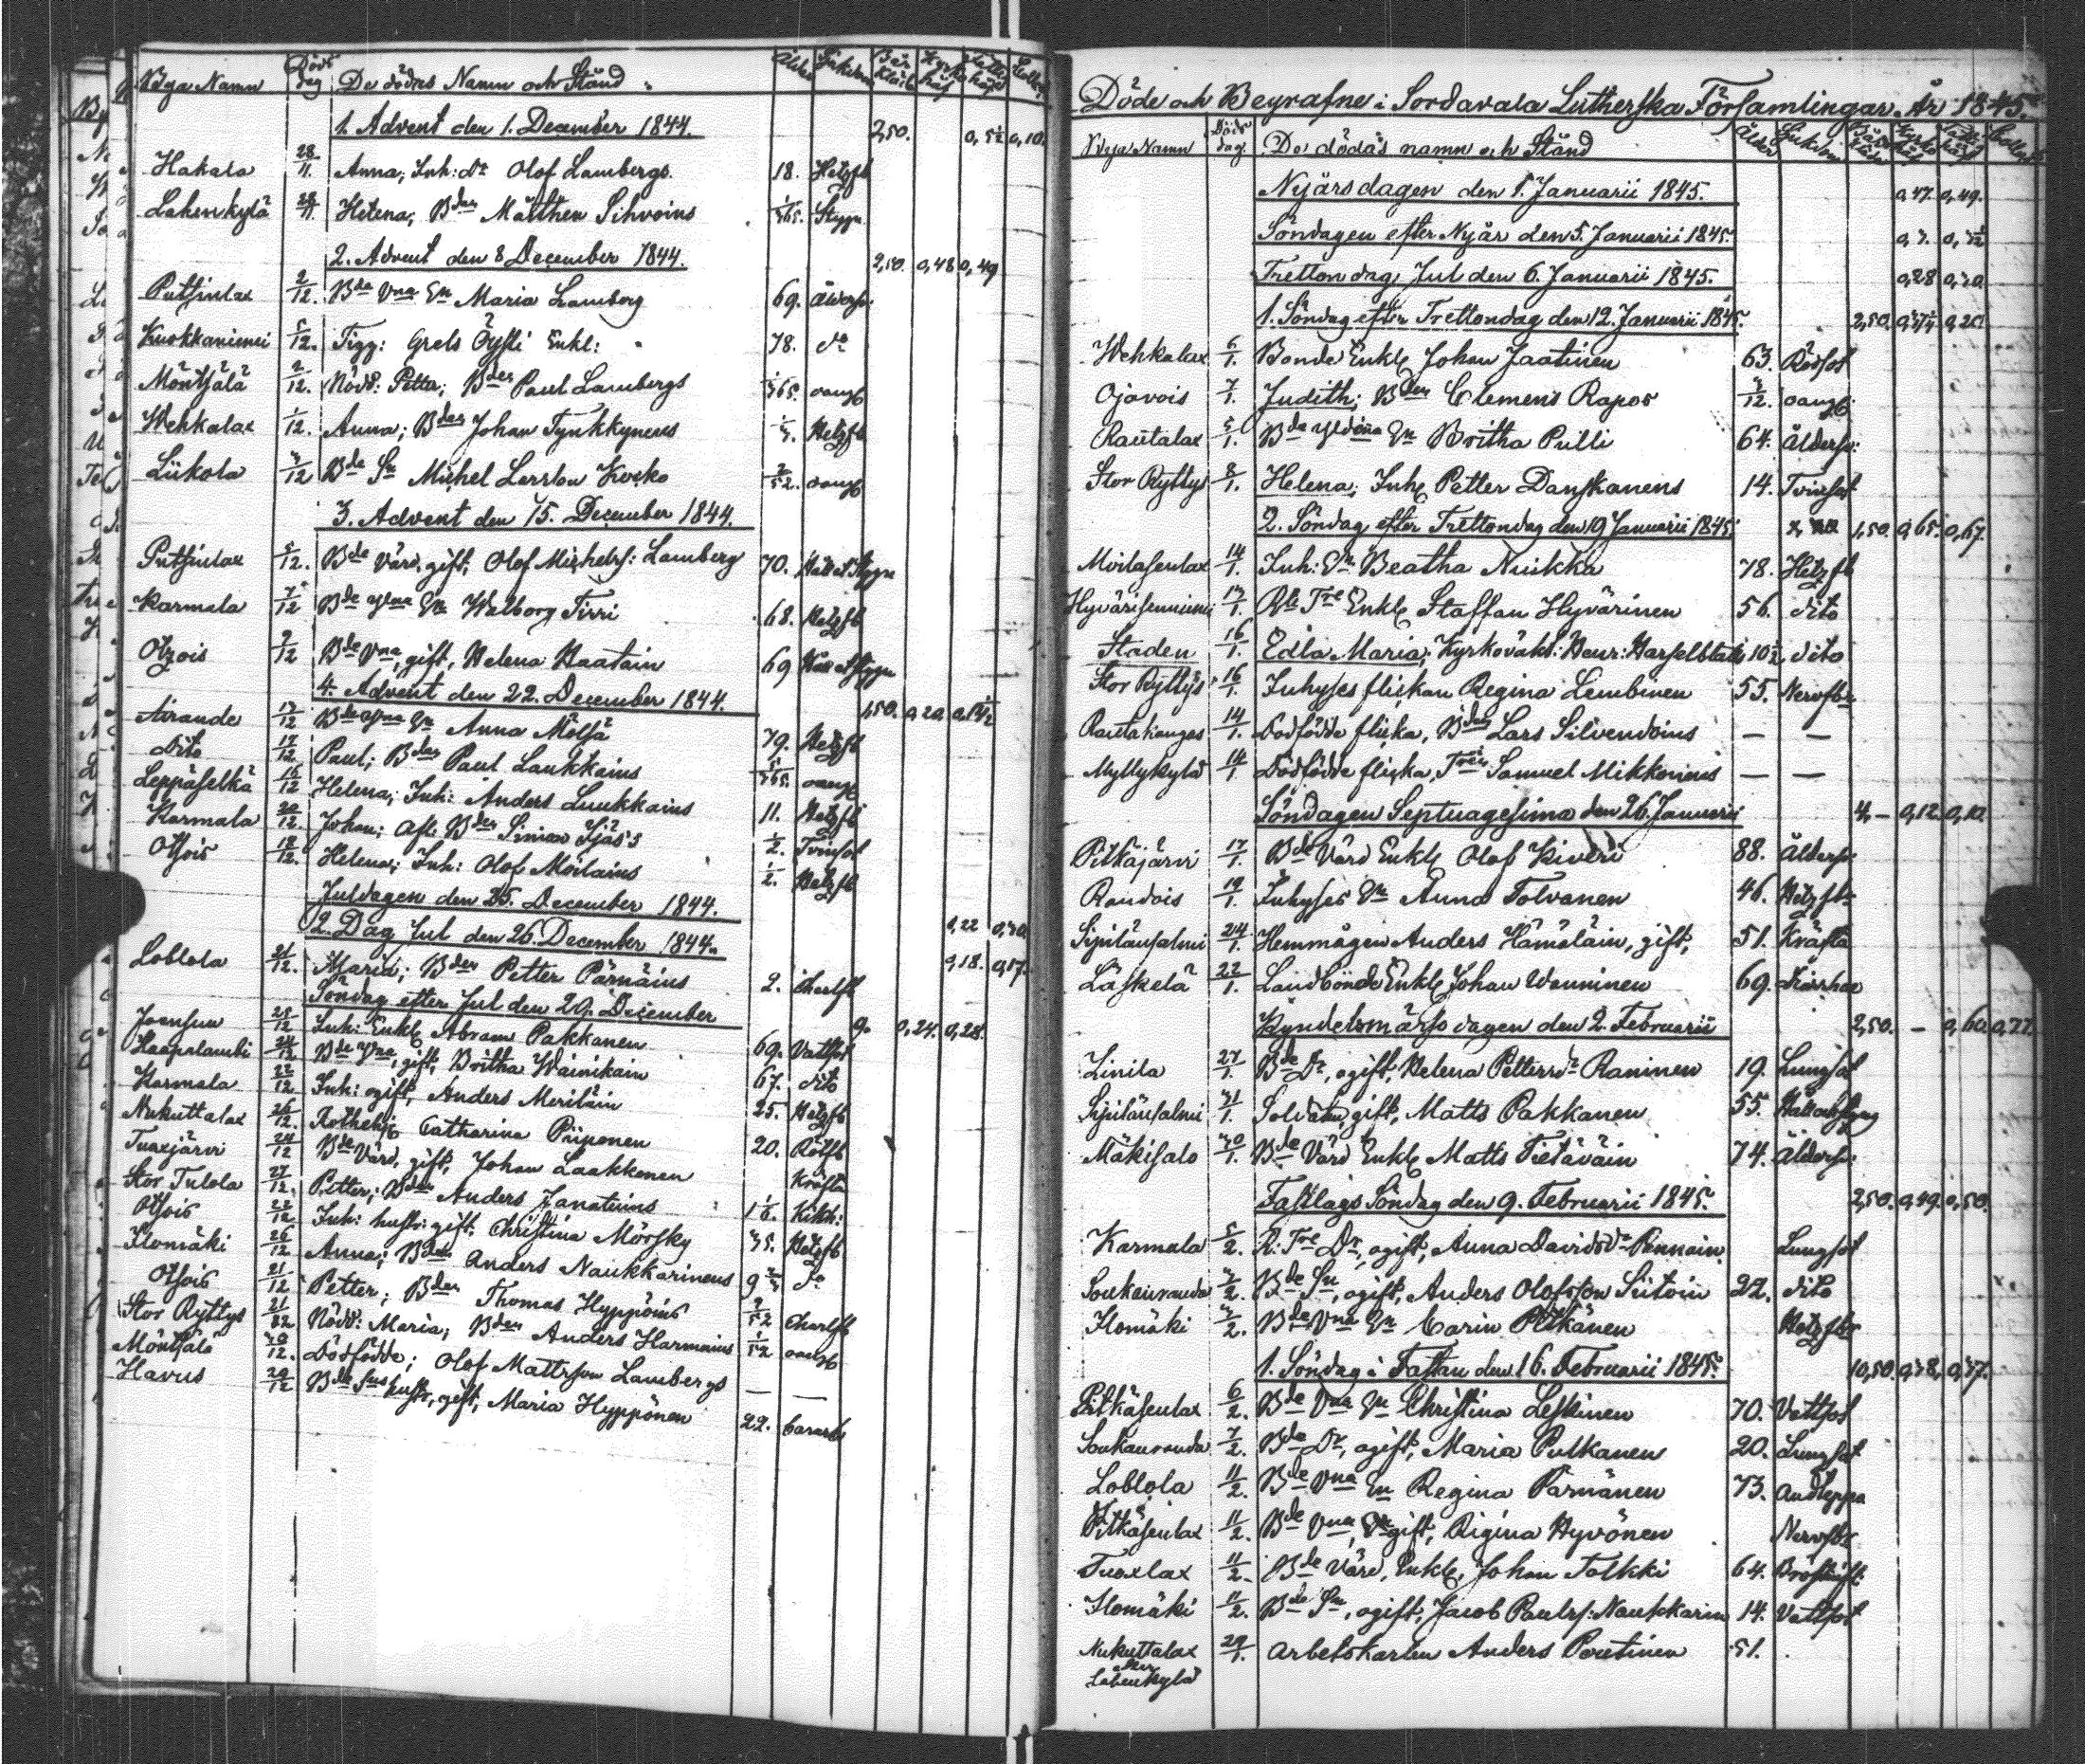 Byja Namn Döds dag De dödas Namn och Stånd Ålder Sjukdom
1. Advent den 1. December 1844. 2,50. 0,5½ 0,10.
Hakala 28/11. Anna; Inh: dr Olof Lambergs. 18. Hetzfb
Lahenkylä 28/11. Helena; Bden Matthen Sihvoins 1/365. Slagga
2. Advent den 8 December 1844. 2,50. 0,48 0,49
Putsinlax 2/12. Bde Vna En Maria Lamberg 69. Åldersv:
Kuokkaniemi 5/12. Tigg: Grels Öysti Enkl: 78. do
Möntsälä 2/12. Nödd: Petter; Bden Paul Lambergs 1/365. oangf
Wehkalax 1/12. Anna; Bden Johan Tynkkynens Hetzfb
Liikola 3/12 Bde Sn Michel Larsson Kocko 2/52. oangf
3. Advent den 15. December 1844.
Putsinlax 5/12. Bde Värd, gift, Olof Michelss: Lamberg 70. Håll et Stygn
Karmala 7/12 Bde Vna En Walborg Tirri 68. Hetzfb
Otzois 9/12 Bde Vna, gift, Helena Haatain 69 Håll et Stygn
4. Advent den 22. December 1844. 1,50. 0,20
Airanne 17/12 Bde Vna En Anna Mölsä 79. Hetzfb
dito 17/12. Paul; Bden Paul Laukkains 5/365. oangf
Leppäselkä 16/12 Helena; Inh: Anders Luukkains 11. Hetzfb
Karmala 20/12. Johan; afl. Bden Simon Sjäs's 1/2. Tvinsot
Otsois 18/12. Helena; Inh: Olof Moilains 1/2. Hetzfb
Juldagen den 25. December 1844. 0,22 0,30.
2. Dag Jul den 26. December 1844. 0,18. 0,17.
Loblola 21/12. Maria; Bden Petter Pärnäins 2. Charlfb
Söndag efter Jul den 29. December 9. 0,24. 0,28.
Joensuu 25/12 Inh: Enkl Abram Pakkanen 69. Vattsot
Haapalambi 24/12 Bde Vna, gift, Britha Wainikain 67. dito
Karmala 22/12 Inh: ogift, Anders Meriläin 25. Hetzfb
Nukuttalax 26/12. Rothehj: Catharina Piiponen 20. Rötfb
Tuoxjärvi 24/12 Bde Värd, gift, Johan Laakkonen Kräfta
Stor Tulola 27/12. Petter; Bden Anders Janatuins 1 1/6. Kikh:
Otsois 22/12 Inh: hustr: gift. Christina Mörsky 35. Hetzfb
Ilomäki 26/12 Anna; Bden Anders Naukkarinens 9 do
Otsois 21/12 Petter; Bden Thomas Hyppöins 2/52 Charlfb
Stor Ryttys 21/12 Nödd: Maria; Bden Anders Harmains 1/52 oangf
Möntsälä 20/12. Dödfödde; Olof Mattsson Lambergs — —
Havus 20/12 Bde Sns hustr, gift, Maria Hyppönen 22. Barnsb
Döde och Begrafne i Sordavala Lutherska Församlingar. År 1845.
Byja Namn Döds dag. De dödas namn och Stånd Ålder Sjukdom
Nyårsdagen den 1. Januarii 1845. 0,47. 0,49.
Söndagen efter Nyår den 5. Januarii 1845.
Trettondag Jul den 6. Januarii 1845. 0,28 0,30
1. Söndag efter Trettondag den 12. Januarii 1845. 2,50. 0,20
Wehkalax 6/1. Bonde Enkl Johan Jaatinen 63. Rödsot
Ojavois 7/1. Judith; Bden Clemens Rapos 3/12. oangf:
Rautalax 5/1. Bde Värdina En Britha Pulli 64. Åldersv:
Stor Ryttys 8/1. Helena; Inh Petter Danskanens 14. Tvinsot
2. Söndag efter Trettondag den 19. Januarii 1845. 1,50. 0,65. 0,67.
Moilasenlax 14/1. Inh: En Beatha Nuikka 78. Hetzfb
Hyvärisenniemi 13/1. Rts Tre Enkl Staffan Hyvärinen 56. dito
Staden 16/1. Edla Maria; Kyrkovakt: Henr: Hasselblatt 10½ dito
Stor Ryttys 16/1. Inhyses flickan Regina Lembinen 55. Nervfbr
Rautakangas 14/1. Dödfödde flicka, Bden Lars Silvendoins — —
Myllykylä 14/1. Dödfödde flicka, Tren Samuel Mikkonens — —
Söndagen Septuagesima den 26. Januarii 4,— 0,12. 0,10.
Pitkäjärvi 17/1. Bde Värd Enkl Olof Kiveri 88. Åldersv:
Raudois 19/1. Inhyses En Anna Tolvanen 46. Hetzfbr
Sipilänsalmi 24/1. Hemmågen Anders Hämäläin, gift, 51. Kräfta
Läskelä 22/1. Landbonde Enkl Johan Wenninen 69. Diarrhoe
Kyndelsmässodagen den 2. Februarii 2,50. — 0,60 0,77.
Linila 27/1. Bde Dr, ogift, Helena Pettersdr Raninen 19. Lungsot
Sipilänsalmi 31/1. Soldaten, gift, Matts Pakkanen 55. Håll och Styng
Mäkisalo 30/1. Bde Värd Enkl Matts Tietäväin 74. Åldersv:
Fastlags Söndag den 9. Februarii 1845. 2,50. 0,49. 0,50.
Karmala 5/2. R: Tre Dr, ogift, Anna Davidsdr Pennain Lungsot
Soukanranda 3/2. Bde Sn, ogift, Anders Olofsson Siitoin 22. dito
Ilomäki 3/2. Bde Vna En Carin Pitkänen Hetzfbr
1. Söndag i Fastan den 16. Februarii 1845. 10,50. 0,38, 0,37.
Pitkäsenlax 6/2. Bde Vna En Christina Leskinen 70. Vattsot
Soukanranda 7/2. Bde Dr, ogift, Maria Pulkanen 20. Lungsot
Loblola 11/2. Bde Vna En Regina Pärnänen 73. Andteppa
Pitkäsenlax 11/2. Bde Vna, gift, Rigina Hyvönen Nervfbr
Tuoxlax 11/2. Bde Värd, Enkl, Johan Tolkki 64. Bröstsift:
Ilomäki 11/2. Bde Sn, ogift, Jacob Paulss: Naukkarin 14. Vattsot
Nukuttalax 29/1. Arbetskarlen Anders Poutinen 51.
eller
Lahenkylä